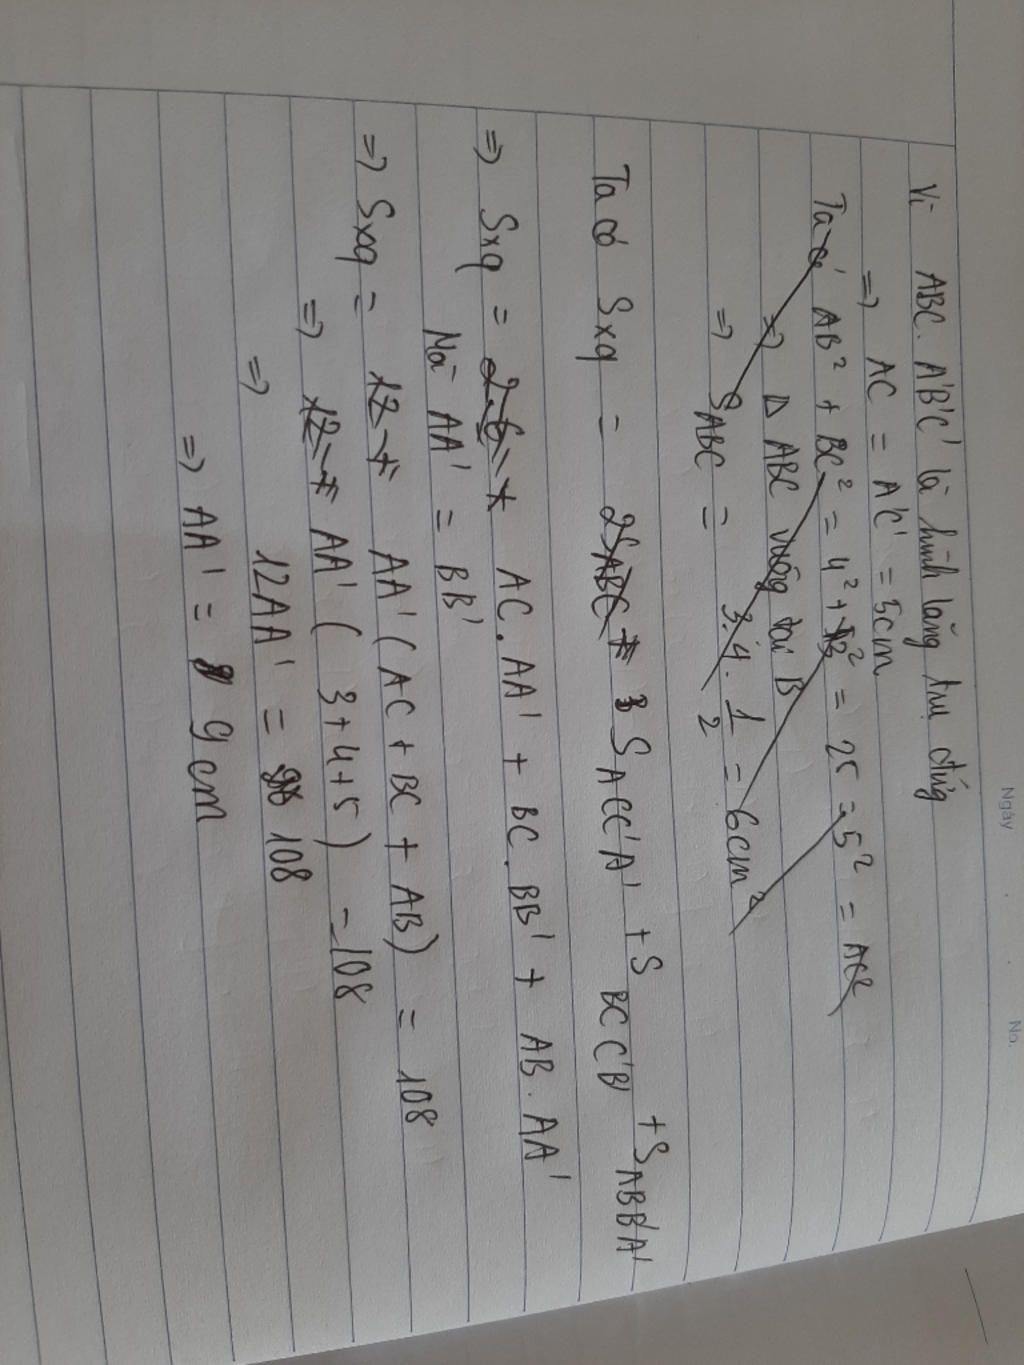 Ngày
No.
Vì ABC. A'B'C' là hình lăng trụ đứng
=> AC = A'C' = 5cm
Ta có AB² + BC² = 4² + 3² = 25 = 5² = AC²
=> Δ ABC vuông tại B
=> S_ABC = 3.4. 1/2 = 6cm²
Ta có Sxq = 2S_ABC + S_ACC'A' + S_BCC'B' + S_ABB'A'
=> Sxq = 2.6 + AC. AA' + BC. BB' + AB. AA'
Mà AA' = BB'
=> Sxq = 12 + AA' (AC + BC + AB) = 108
=> 12 + AA' ( 3+4+5) = 108
=> 12AA' = 108
=> AA' = 9cm